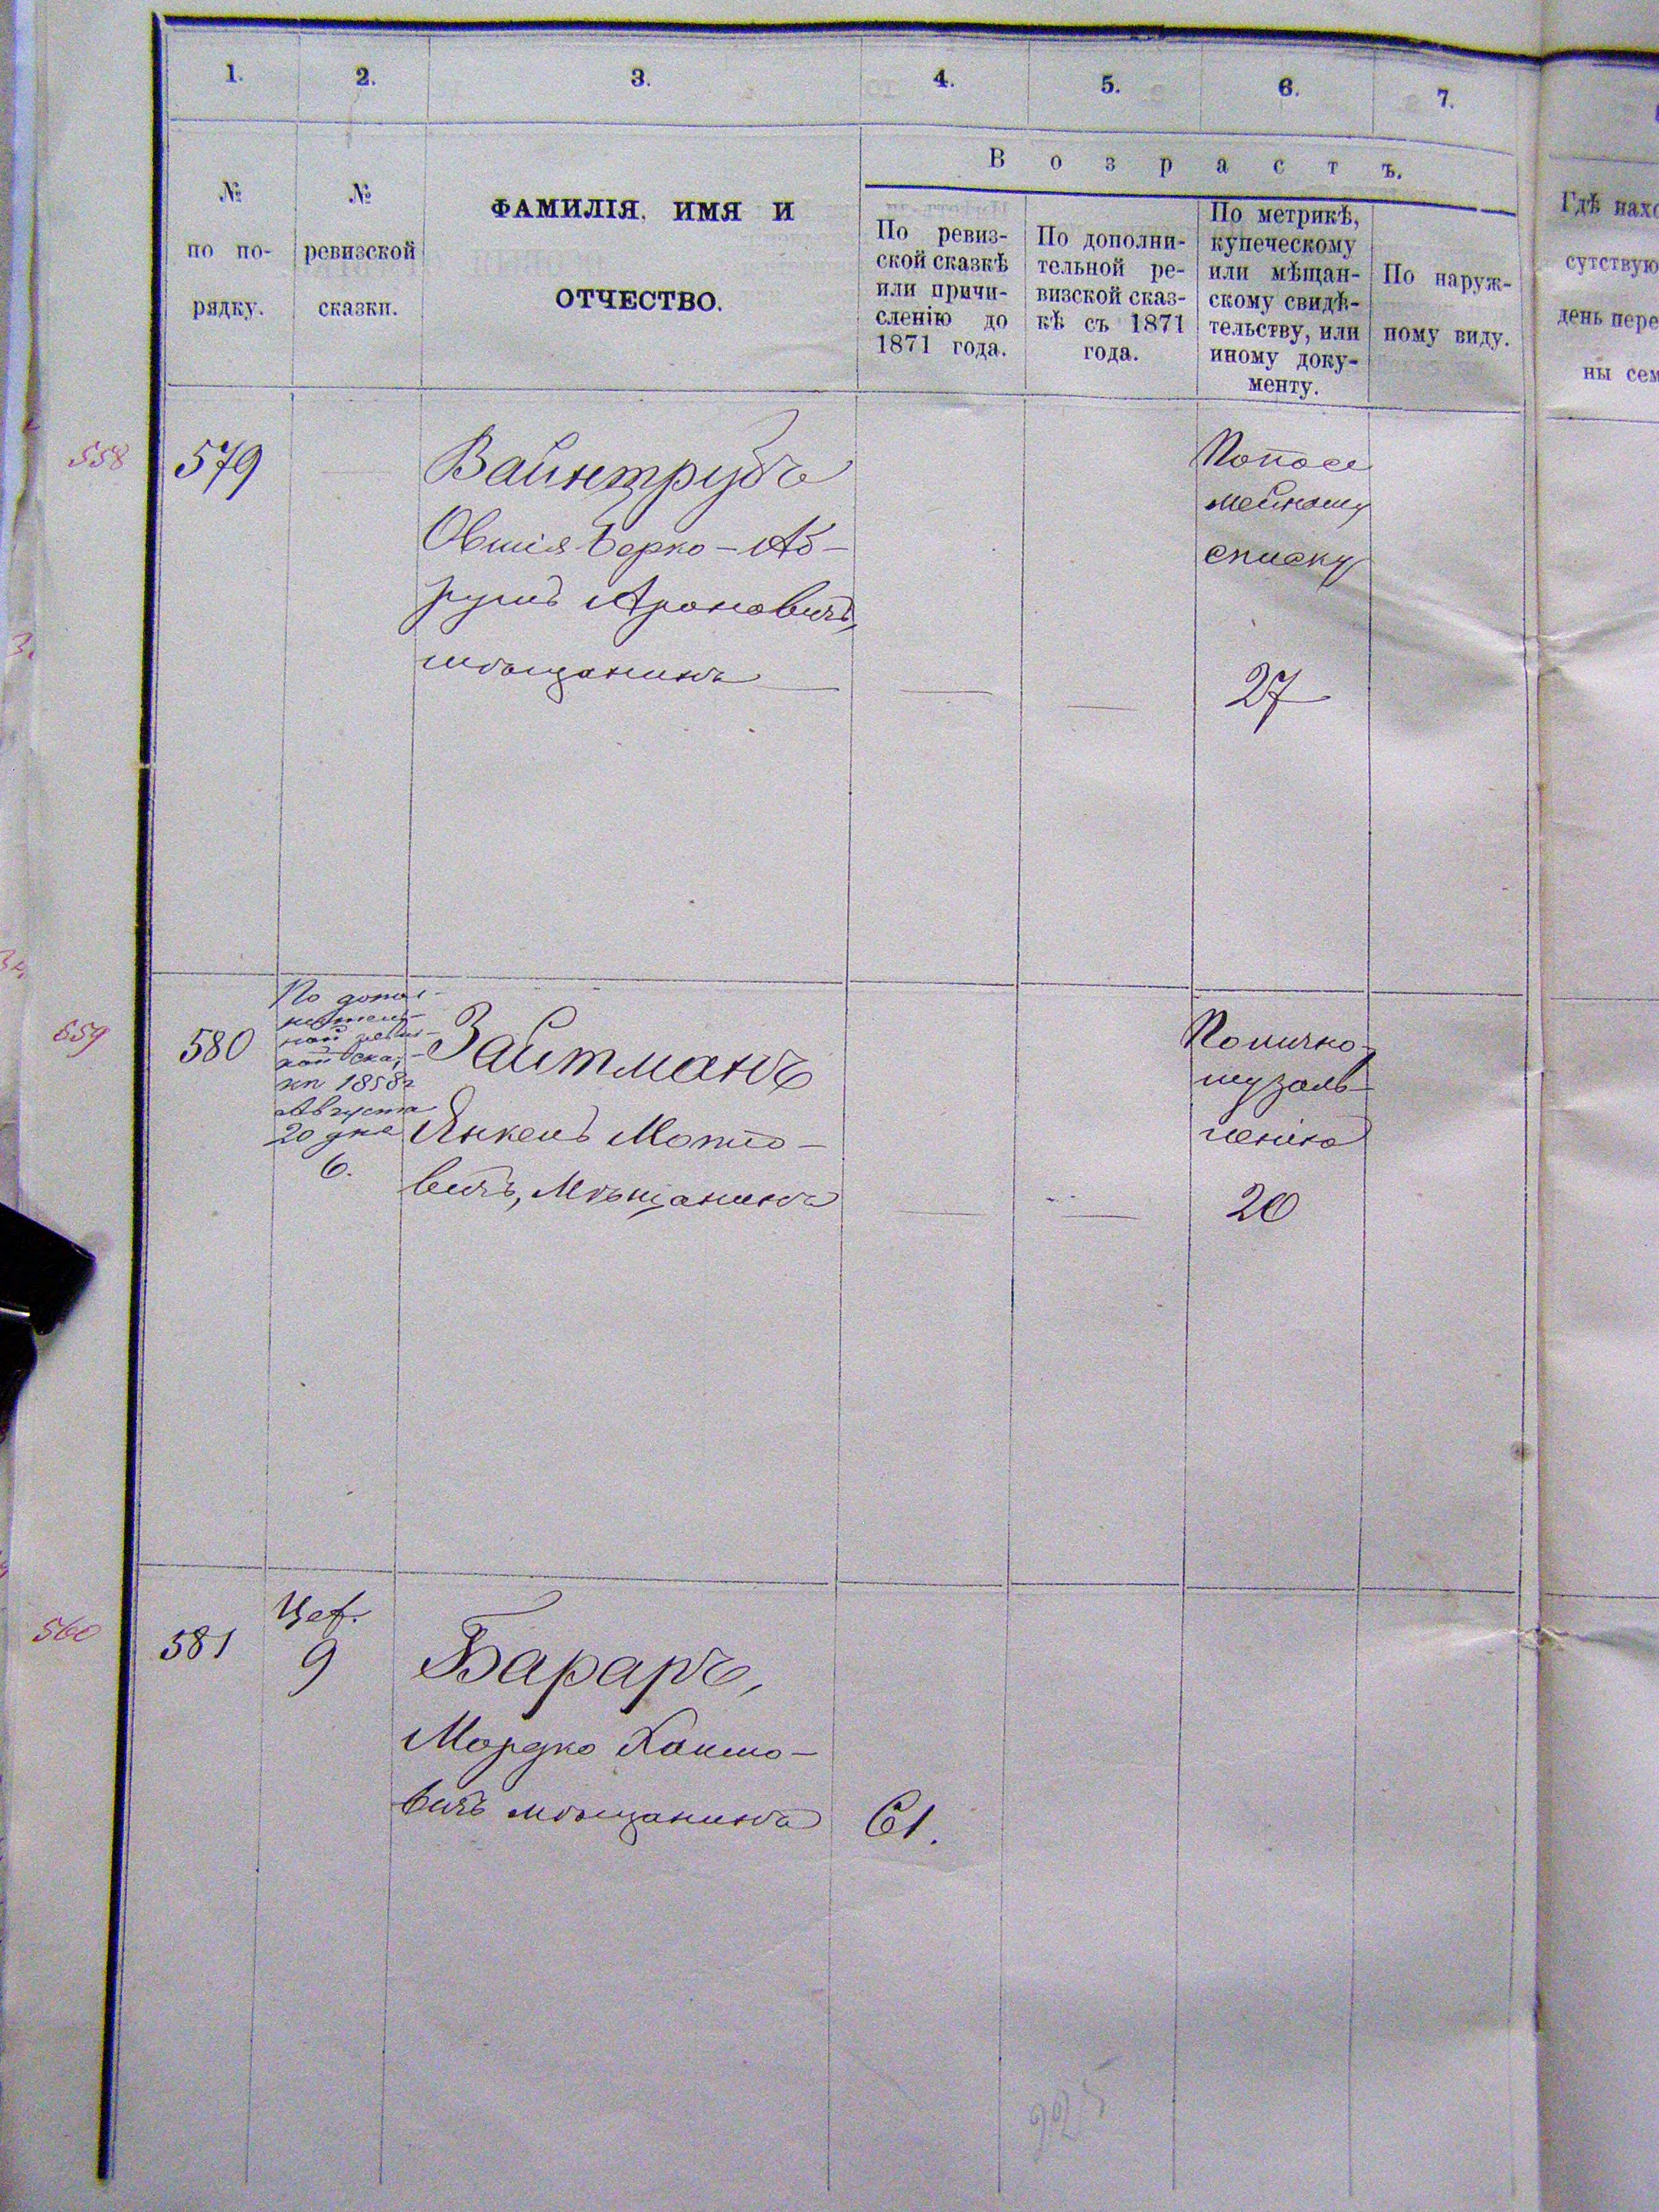 1. 2. 3. 4. 5. 6. 7.
№
по по-
рядку.
№
ревизской
сказки.
ФАМИЛІЯ, ИМЯ И
ОТЧЕСТВО.
В о з р а с т ъ.
По ревиз-
ской сказкѣ
или причи-
сленію до
1871 года.
По дополни-
тельной ре-
визской сказ-
кѣ съ 1871
года.
По метрикѣ,
купеческому
или мѣщан-
скому свидѣ-
тельству, или
иному доку-
менту.
По наруж-
ному виду.
Гдѣ нахо
сутствую
день пере
ны сем
558
579
Вайнтрубъ
Овшія Берко-Аб-
румъ Ароновичъ,
мѣщанинъ
По посе
мейному
списку
27
559
580
По допол-
нитель-
ной ревиз-
кой сказ-
ки 1858г
Августа
20 дня
6.
Зайтманъ
Янкель Мотто-
вичъ, Мѣщанинъ
По лично-
му заяв-
ленію
20
560
581
9
Бараръ,
Мордко Хаимо-
вичъ мѣщанинъ
61.
225